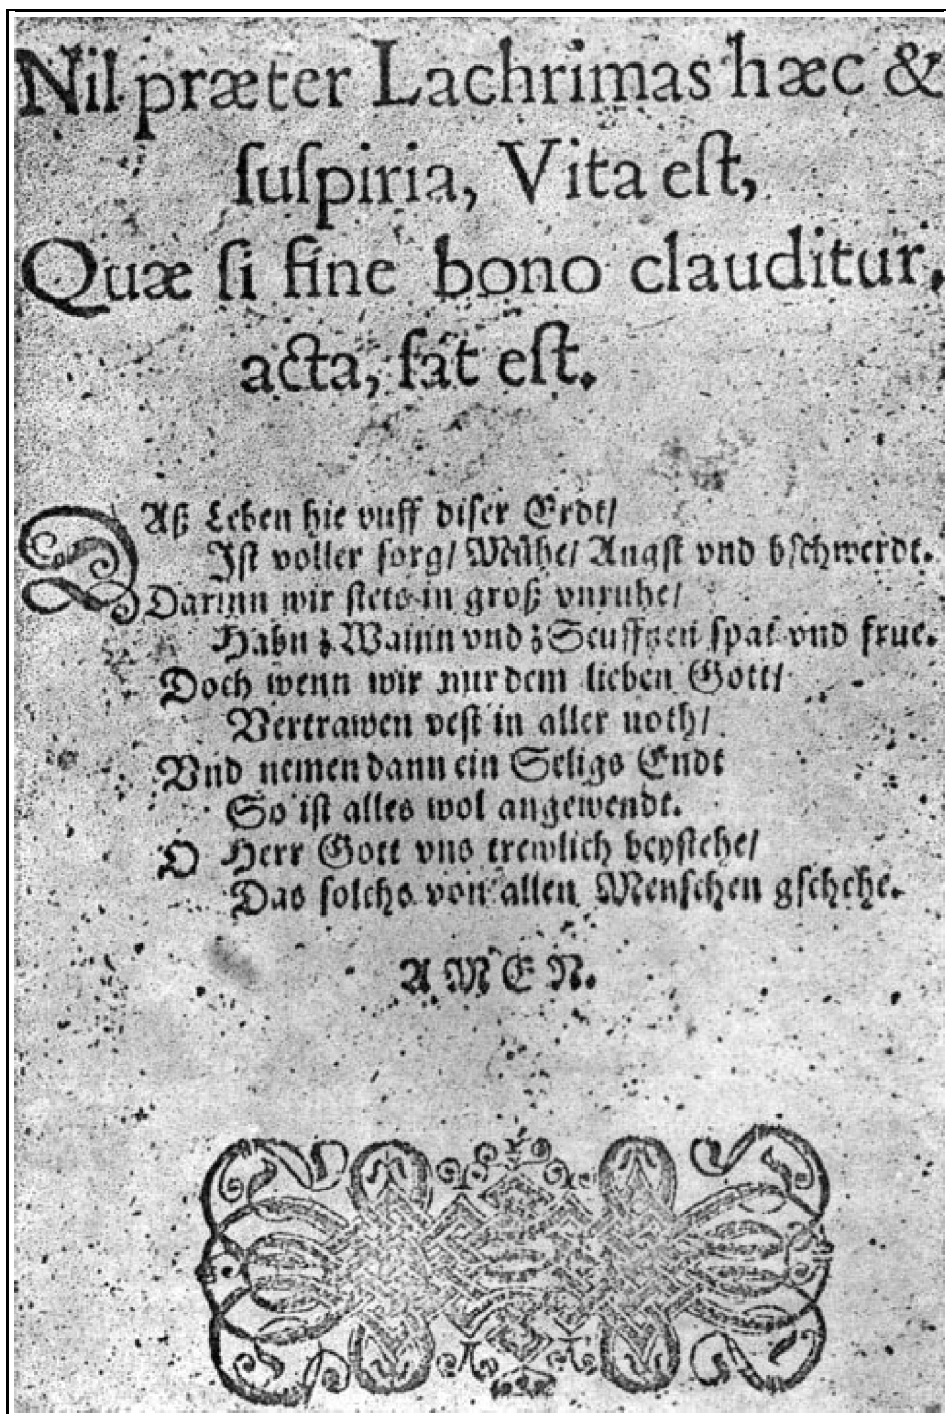 Nil præter Lachrimas hæc &
ſuſpiria, Vita eſt,
Quæ ſi fine bono clauditur,
acta, ſat eſt.
DAß Leben hie vuff diſer Erdt/
Iſt voller ſorg/ Mühe/ Angſt vnd bſchwerdt.
Darinn wir ſtets in groß vnruhe/
Habn ʒ Wainn vnd ʒ Seufftzen ſpat vnd frue.
Doch wenn wir nur dem lieben Gott/
Vertrawen veſt in aller noth/
Vnd nemen dann ein Seligs Endt
So iſt alles wol angewendt.
O Herr Gott vns trewlich beyſtehe/
Das ſolchs von allen Menſchen gſchehe.
AMEN.